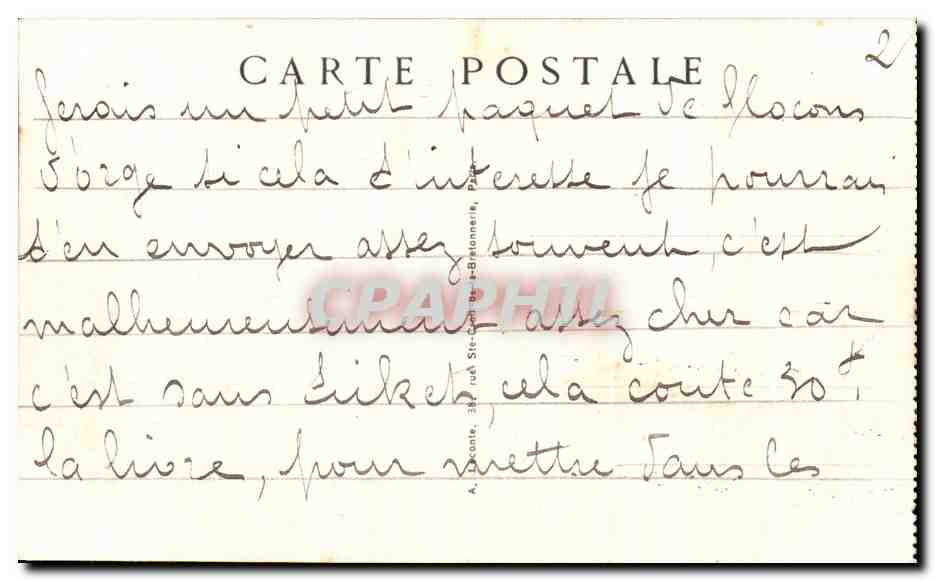 2
CARTE POSTALE
ferais un petit paquet de flocons
d'orge si cela t'interesse je pourrai
t'en envoyer assez souvent, c'est
malheureusement assez cher car
c'est sans ticket, cela coute 50f
la livre, pour mettre dans les
A. Leconte, 38, rue Ste-Croix-de-la-Bretonnerie, Paris
CPAPHIL